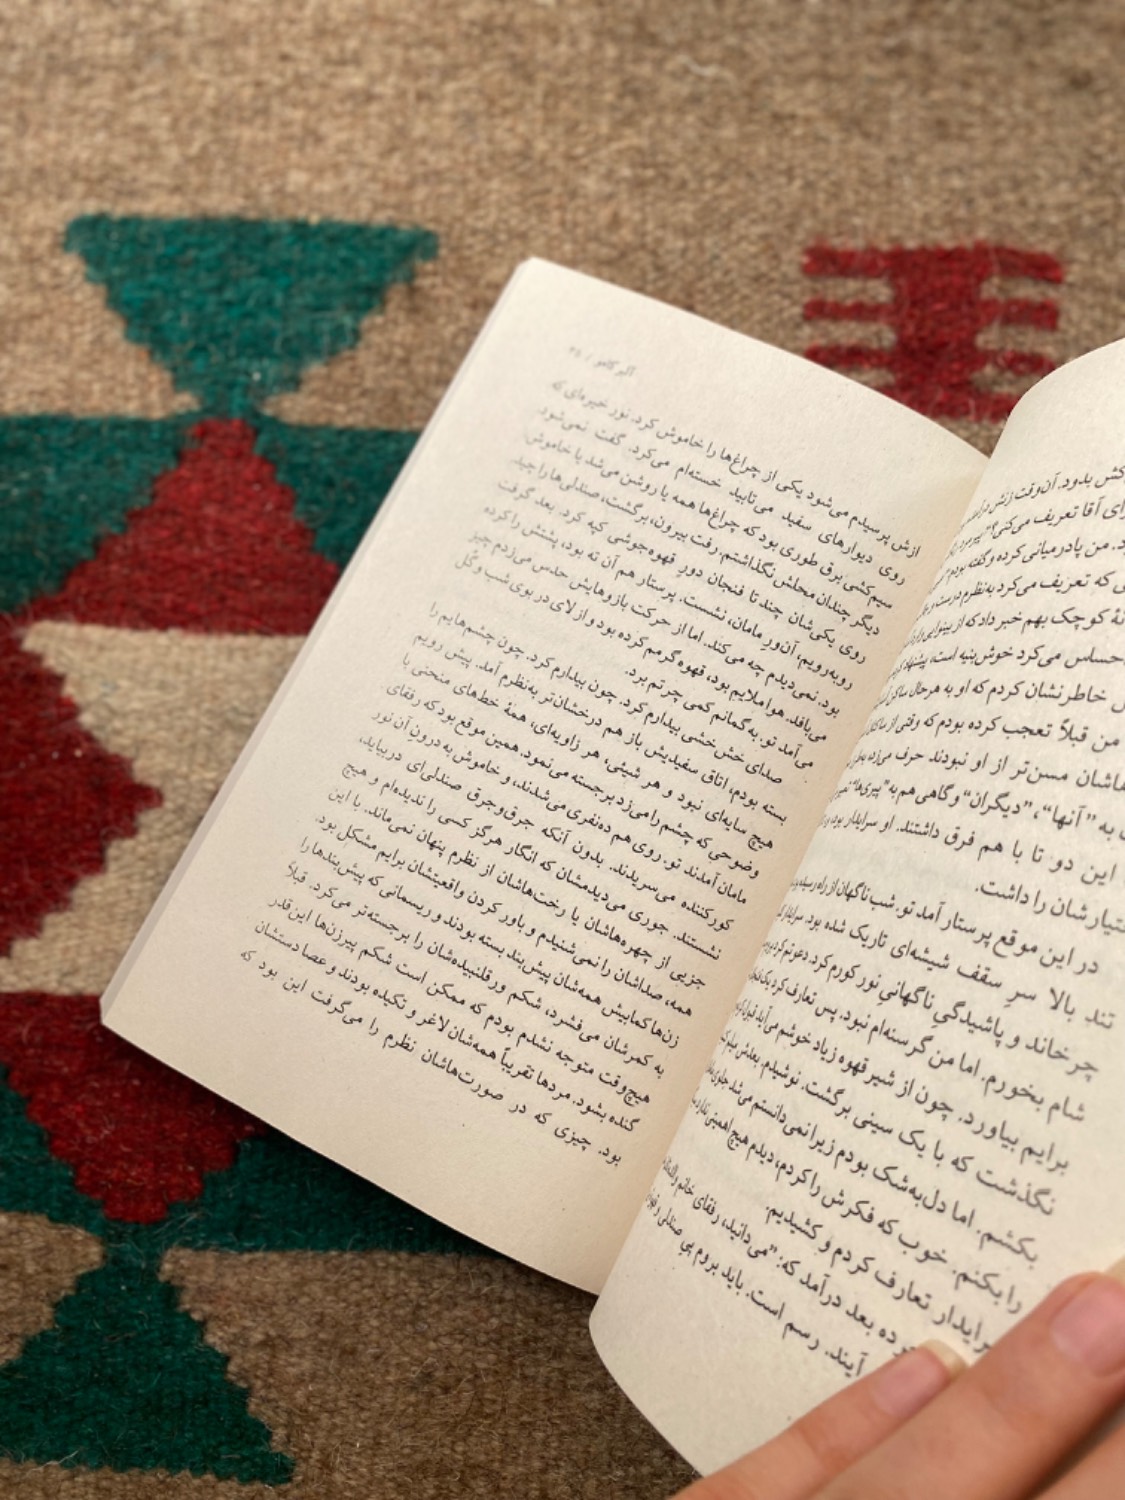 کش بدود. آن‌وقت زنش درآمد
ای آقا تعریف می‌کنی؟" پیرمرد
من پادرمیانی کرده و گفته بودم
که تعریف می‌کرد به‌نظرم درست و
کوچک بهم خبر داد که از بینوایی وارد
احساس می‌کرد خوش‌بنیه است، پیشنهاد
خاطرنشان کردم که او به هر حال ساکن
من قبلاً تعجب کرده بودم که وقتی از
هاشان مسن‌تر از او نبودند حرف می‌زد
به "آنها"، "دیگران" و گاهی هم به "پیری‌ها"
این دو تا با هم فرق داشتند. او سرایدار بود
اختیارشان را داشت.
در این موقع پرستار آمد تو. شب ناگهان از راه رسیده
تند بالا سرِ سقف شیشه‌ای تاریک شده بود. سرایدار
چرخاند و پاشیدگیِ ناگهانیِ نور کورم کرد. دعوتم کرد
شام بخورم. اما من گرسنه‌ام نبود. پس تعارف کرد یک
برایم بیاورد. چون از شیرقهوه زیاد خوشم می‌آید قبول
نگذشت که با یک سینی برگشت. نوشیدم. بعدش
بکشم. اما دل‌به‌شک بودم زیرا نمی‌دانستم می‌شد جلوی
را بکنم. خوب که فکرش را کردم، دیدم هیچ اهمیتی
سرایدار تعارف کردم و کشیدیم.
بعد درآمد که: "می‌دانید، رفقای خانم
آیند. رسم است. باید بروم پیِ صندلی و
آلبر کامو /
ازش پرسیدم می‌شود یکی از چراغ‌ها را خاموش کرد. نور خیره‌ای که
روی دیوارهای سفید می‌تابید خسته‌ام می‌کرد. گفت نمی‌شود.
سیم‌کشی برق طوری بود که چراغ‌ها همه یا روشن می‌شد یا خاموش.
دیگر چندان محلش نگذاشتم. رفت بیرون، برگشت، صندلی‌ها را چید.
روی یکی‌شان چند تا فنجان دورِ قهوه‌جوشی کپه کرد. بعد گرفت
روبه‌رویم، آن‌ورِ مامان، نشست. پرستار هم آن ته بود، پشتش را کرده
بود. نمی‌دیدم چه می‌کند. اما از حرکت بازوهایش حدس می‌زدم چیز
می‌بافد. هوا ملایم بود، قهوه گرمم کرده بود و از لای در بوی شب و گل
می‌آمد تو. به گمانم کمی چرتم برد.
صدای خش‌خشی بیدارم کرد. چون بیدارم کرد. چون چشم‌هایم را
بسته بودم، اتاق سفیدیش باز هم درخشان‌تر به‌نظرم آمد. پیش رویم
هیچ سایه‌ای نبود و هر شیئی، هر زاویه‌ای، همهٔ خط‌های منحنی با
وضوحی که چشم را می‌زد برجسته می‌نمود. همین موقع بود که رفقای
مامان آمدند تو. روی هم ده‌نفری می‌شدند، و خاموش به درون آن نور
کورکننده می‌سریدند. بدون آنکه جرق‌وجرق صندلی‌ای دربیاید،
نشستند. جوری می‌دیدمشان که انگار هرگز کسی را ندیده‌ام و هیچ
جزیی از چهره‌هاشان یا رخت‌هاشان از نظرم پنهان نمی‌ماند. با این
همه، صداشان را نمی‌شنیدم و باور کردن واقعیتشان برایم مشکل بود.
زن‌ها کمابیش همه‌شان پیش‌بند بسته بودند و ریسمانی که پیش‌بندها را
به کمرشان می‌فشرد، شکم ورقلنبیده‌شان را برجسته‌تر می‌کرد. قبلاً
هیچ‌وقت متوجه نشدم بودم که ممکن است شکم پیرزن‌ها این‌قدر
گنده بشود. مردها تقریباً همه‌شان لاغر و تکیده بودند و عصا دستشان
بود. چیزی که در صورت‌هاشان نظرم را می‌گرفت این بود که